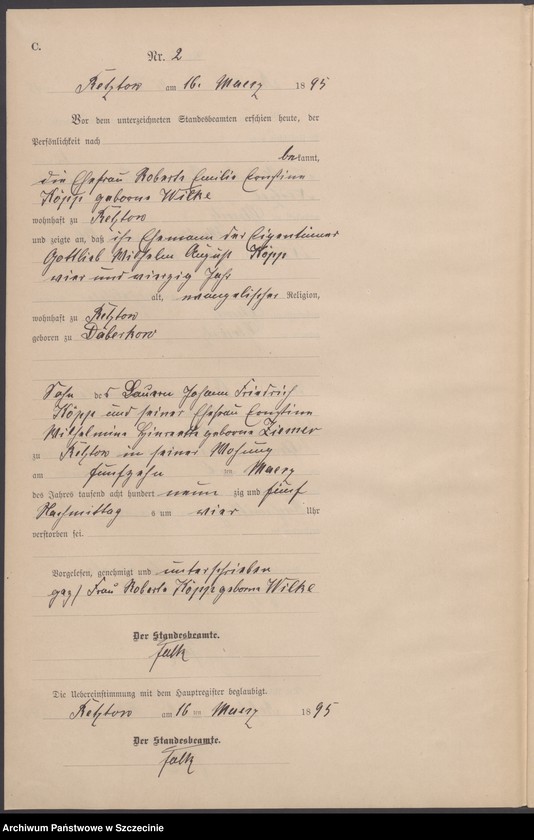 C.
Nr. 2
Retztow am 16. Maerz 1895
Vor dem unterzeichneten Standesbeamten erschien heute, der
Persönlichkeit nach
bekannt,
die Ehefrau Roberte Emilie Ernstine
Köpp geborne Wilke
wohnhaft zu Retztow
und zeigte an, daß ihr Ehemann der Eigentümer
Gottlieb Wilhelm August Köpp
vier und vierzig Jahr
alt, evangelischer Religion,
wohnhaft zu Retztow
geboren zu Daberkow
Sohn des Bauern Johann Friedrich
Köpp und seiner Ehefrau Ernstine
Wilhelmine Henriette geborne Ziemer
zu Retztow in seiner Wohnung
am fünfzehn ten Maerz
des Jahres tausend acht hundert neun zig und fünf
Nachmittag s um vier Uhr
verstorben sei.
Vorgelesen, genehmigt und unterschrieben
gez/ Frau Roberte Köpp geborne Wilke
Der Standesbeamte.
Falk
Die Uebereinstimmung mit dem Hauptregister beglaubigt.
Retztow am 16 ten Maerz 1895
Der Standesbeamte.
Falk
Archiwum Państwowe w Szczecinie